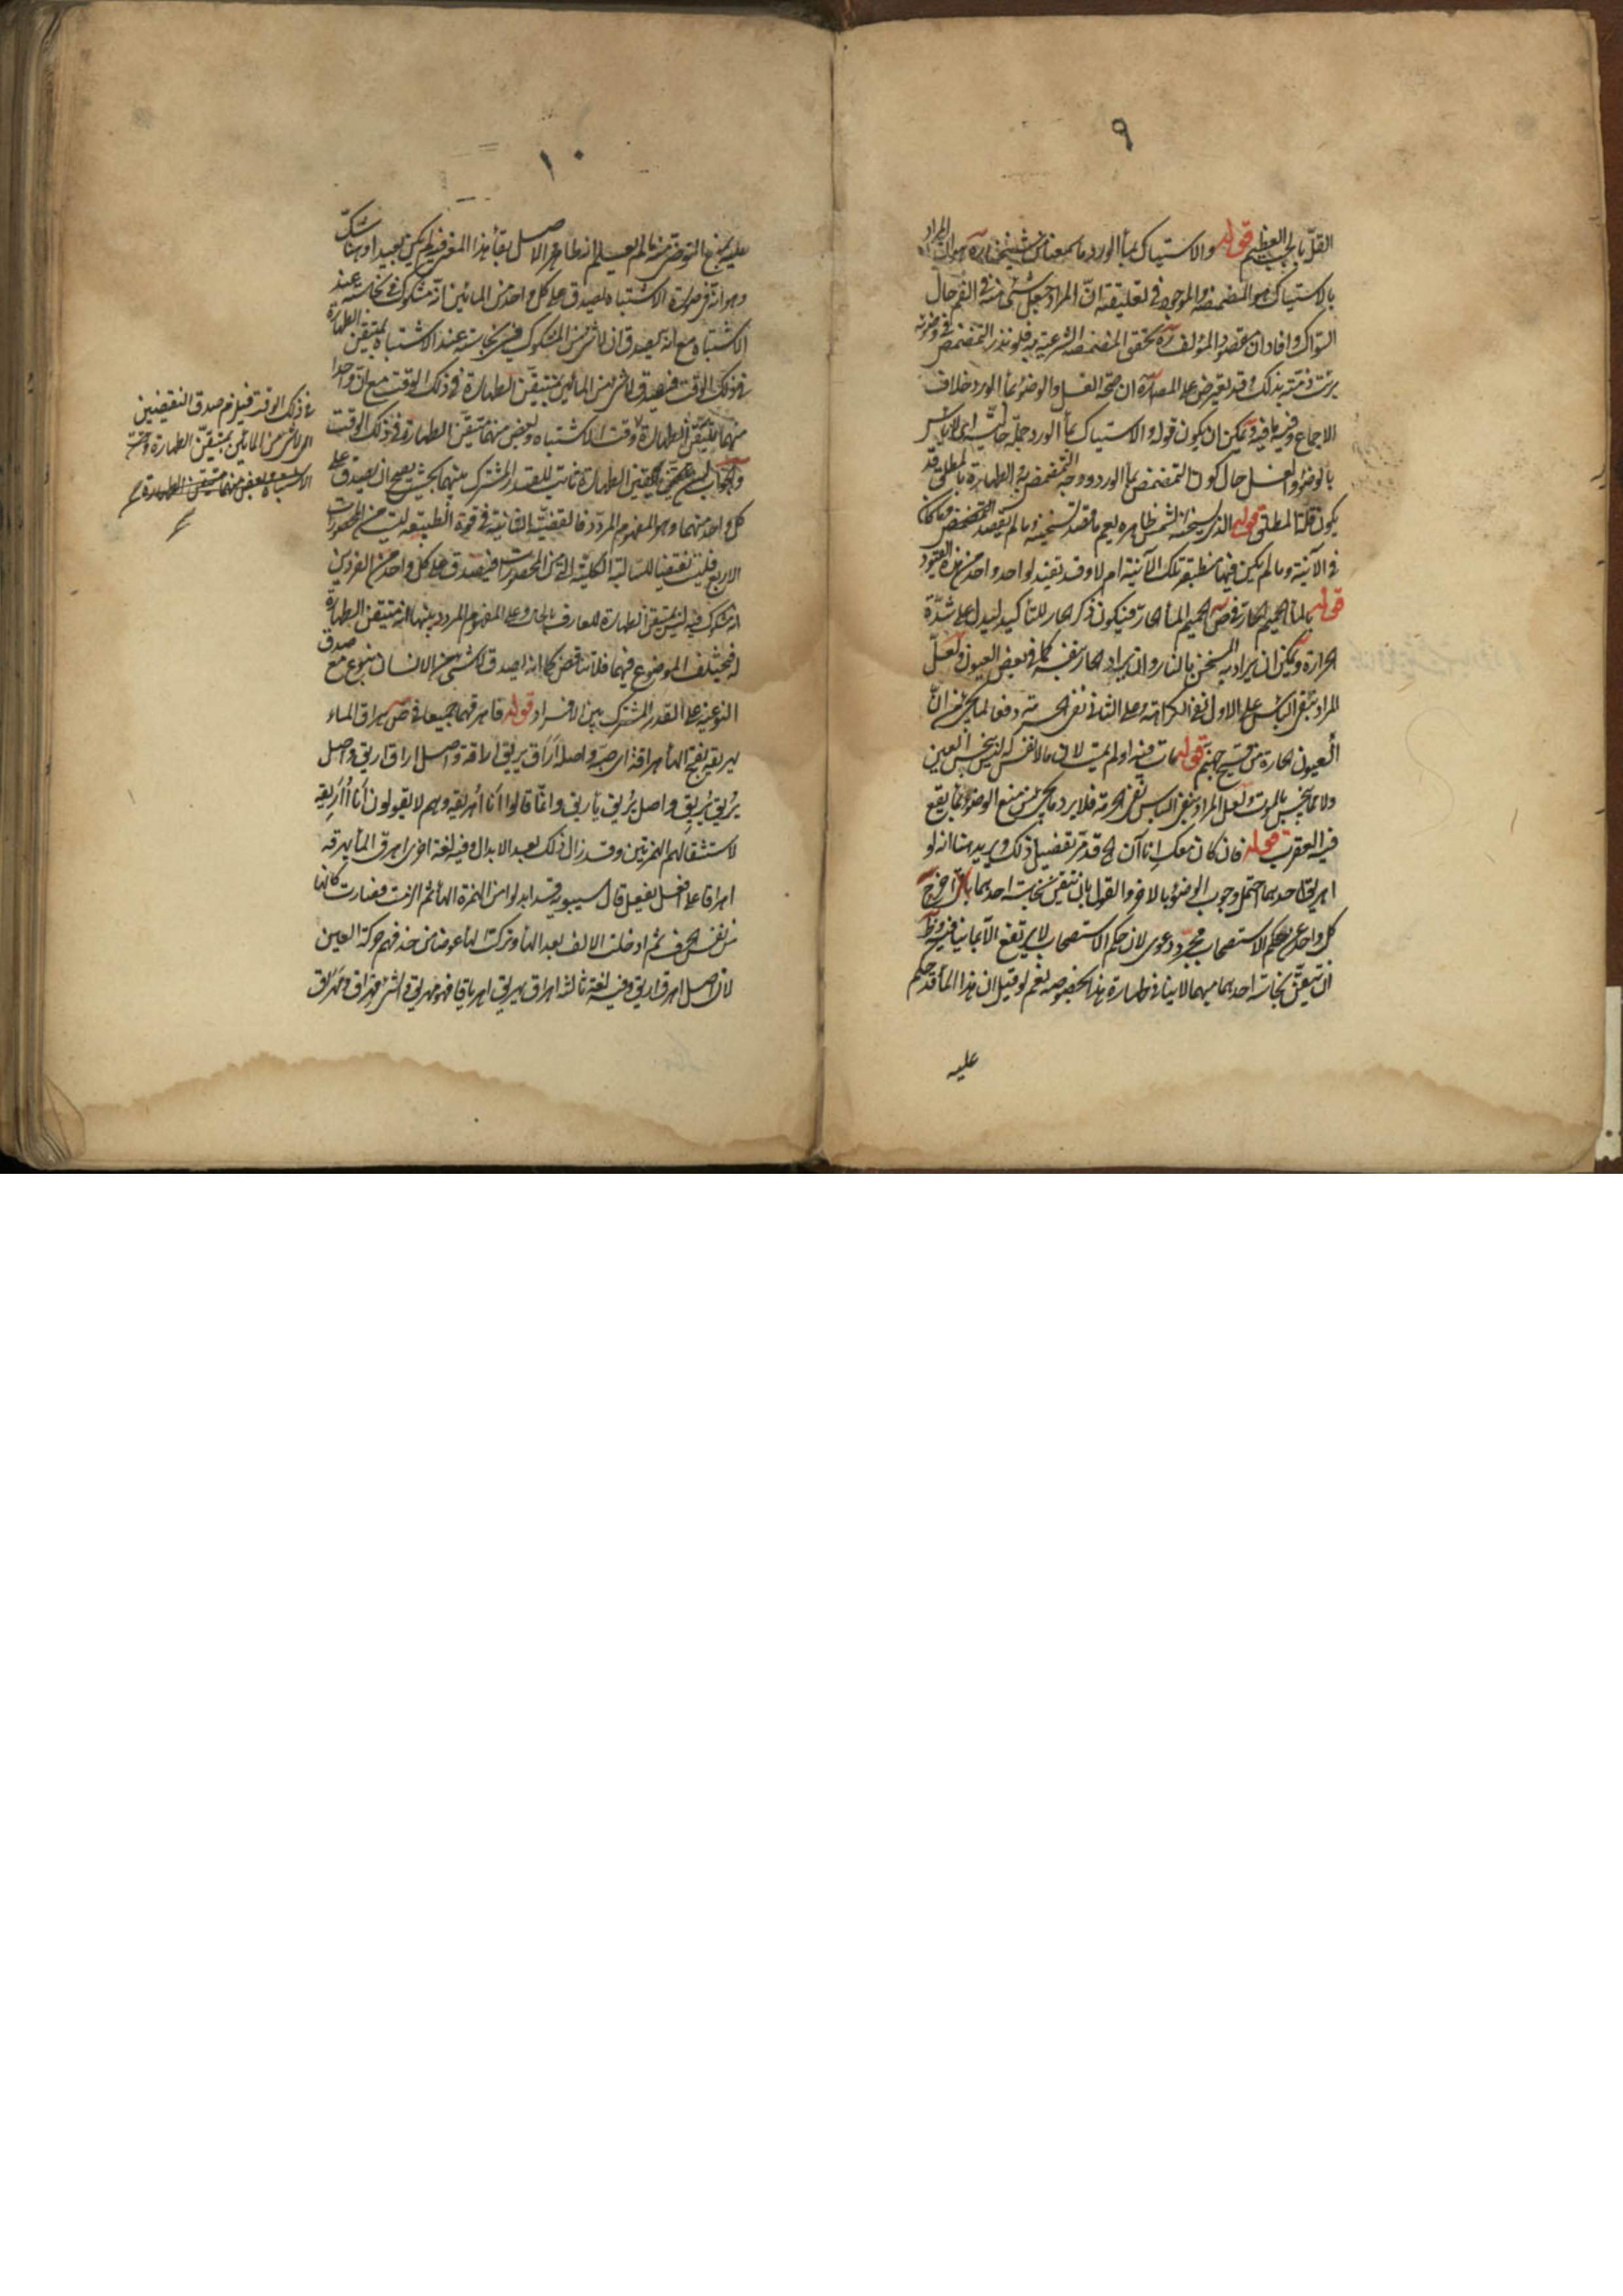 ٩
القلّ بالجب العظيم قوله والاستياك بماء الورد ما سمعناه من شيخنا ره هو ان المراد
بالاستياك هو المضمضة والموجود في تعليقته انّ المراد جعل شئ منه في الفم حال
السّواك وافاد ان مقصود المؤلف ره تحقق المضمضة الشرعية به فلو نذر التمضمض في وضوئه
برئت ذمته بذلك وقد يعترض على المص ره ان صحة الغسل والوضوء بماء الورد خلاف
الاجماع وفيه ما فيه ويمكن ان يكون قوله والاستياك بماء الورد جملة حالية اى لا باس
بالوضوء والغسل حال كون التمضمض بماء الورد ووجه التمضمض به الطهارة بالمطلق قد
يكون قلة المطلق قوله الذى يسخنه الشمس ظاهره يعم ما قصد تسخينه وما لم يقصد
في الآنية وما لم يكن فيها منطبعة تلك الآنية ام لا وقد تقيد لواحد واحد من هذه القيود
قوله بالماء الحميم الحار في ص الحميم الماء الحارّ فيكون ذكر الحار للتأكيد ليدل على شدّة
الحرارة ويمكن ان يراد به المسخن بالنار وان يراد الحار بنفسه كما في بعض العيون ولعلّ
المراد بنفي الباس على الاول نفي الكراهة وعلى الثاني نفي الحرمة دفعا لما يحكى من انّ
العيون الحارة من فيح جهنم قوله مات فيه اولم يمت لان ما لا نفس له ليس بنجس العين
ولا مما ينجس بالموت ولعل المراد بنفي الباس نفي الحرمة فلا يرد ما يحكى من منع الوضوء بما يقع
فيه العقرب قوله فان كان معك اناآن الخ قد مرّ تفصيل ذلك ويريد هنا انه لو
اهريق احدهما احتمل وجوب الوضوء بالاخر والقول بان تيقن نجاسة احدهما اخرج
كل واحد عن حكم الاستصحاب مجرّد دعوى لان حكم الاستصحاب لا يرتفع الا بما ينافيه وظ
انّ تيقّن نجاسة احدهما مبهما لا ينافى طهارة هذا بخصوصه نعم لو قيل ان هذا الماء قد حكم
عليه
١٠
عليه بمنع التوضى منه ما لم يعلم انه طاهر والاصل بقاء هذا المعنى فيه لم يكن بعيدا وهنا شكّ
وهو انّه في صورة الاشتباه يصدق على كل واحد من المائين انّه مشكوك في نجاسته عند
الاشتباه مع انه يصدق ان لا شئ من المشكوك في نجاسته عند الاشتباه بمتيقن الطهارة
في ذلك الوقت فيصدق لا شئ من المائين بمتيقّن الطهارة في ذلك الوقت مع انّ واحدا
منهما متيقن الطهارة وقت الاشتباه وبعض منهما متيقّن الطهارة في ذلك الوقت
والجواب تيقن الطهارة ثابت للقدر المشترك بينهما بحيث يصح ان يصدق على
كل واحد منهما وهو المفهوم المردّد فالقضيّة الثانية في قوة الطبيعة ليست من المحصورات
الاربع فليست نقيضا للسالبة الكلية التى من المحصورات فيصدق على كل واحد من الفردين
انه مشكوك فيه ليس بمتيقن الطهارة وعلى المفهوم المردد بينهما انه متيقن الطهارة
فيختلف الموضوع فيهما فلا تناقض كما انه اصدق لا شئ من الانسان بنوع مع صدق
النوعية على القدر المشترك بين الافراد قوله فاهرقهما جميعا في ص هراق الماء
يهريقه بفتح الهاء هراقة اى صبّه واصله اراق يريق اراقة واصل اراق اريق واصل
يريق يُريِق واصل يريق يأريق وانّما قالوا انا اُهريقه وهم لا يقولون انا اُأَريقه
لاستثقالهم الهمزتين وقد زال ذلك بعد الابدال وفيه لغة اخرى اهرق الماء يهرقه
اهراقا على افعل يفعل قال سيبويه قد ابدلوا من الهمزة الهاء ثم الزمت فصارت كانها
من نفس الحرف ثم ادخلت الالف بعد الهاء وتركت الهاء عوضا من حذفهم حركة العين
لان اصل اهرق اريق وفيه لغة ثالثة اهراق يهريق اهرياقا فهو مهريق والشئ مهراق ومهَراق
في ذلك الوقت فيلزم صدق النقيضين
اى لا شئ من المائين بمتيقن الطهارة وقت
الاشتباه وبعض منهما متيقن الطهارة